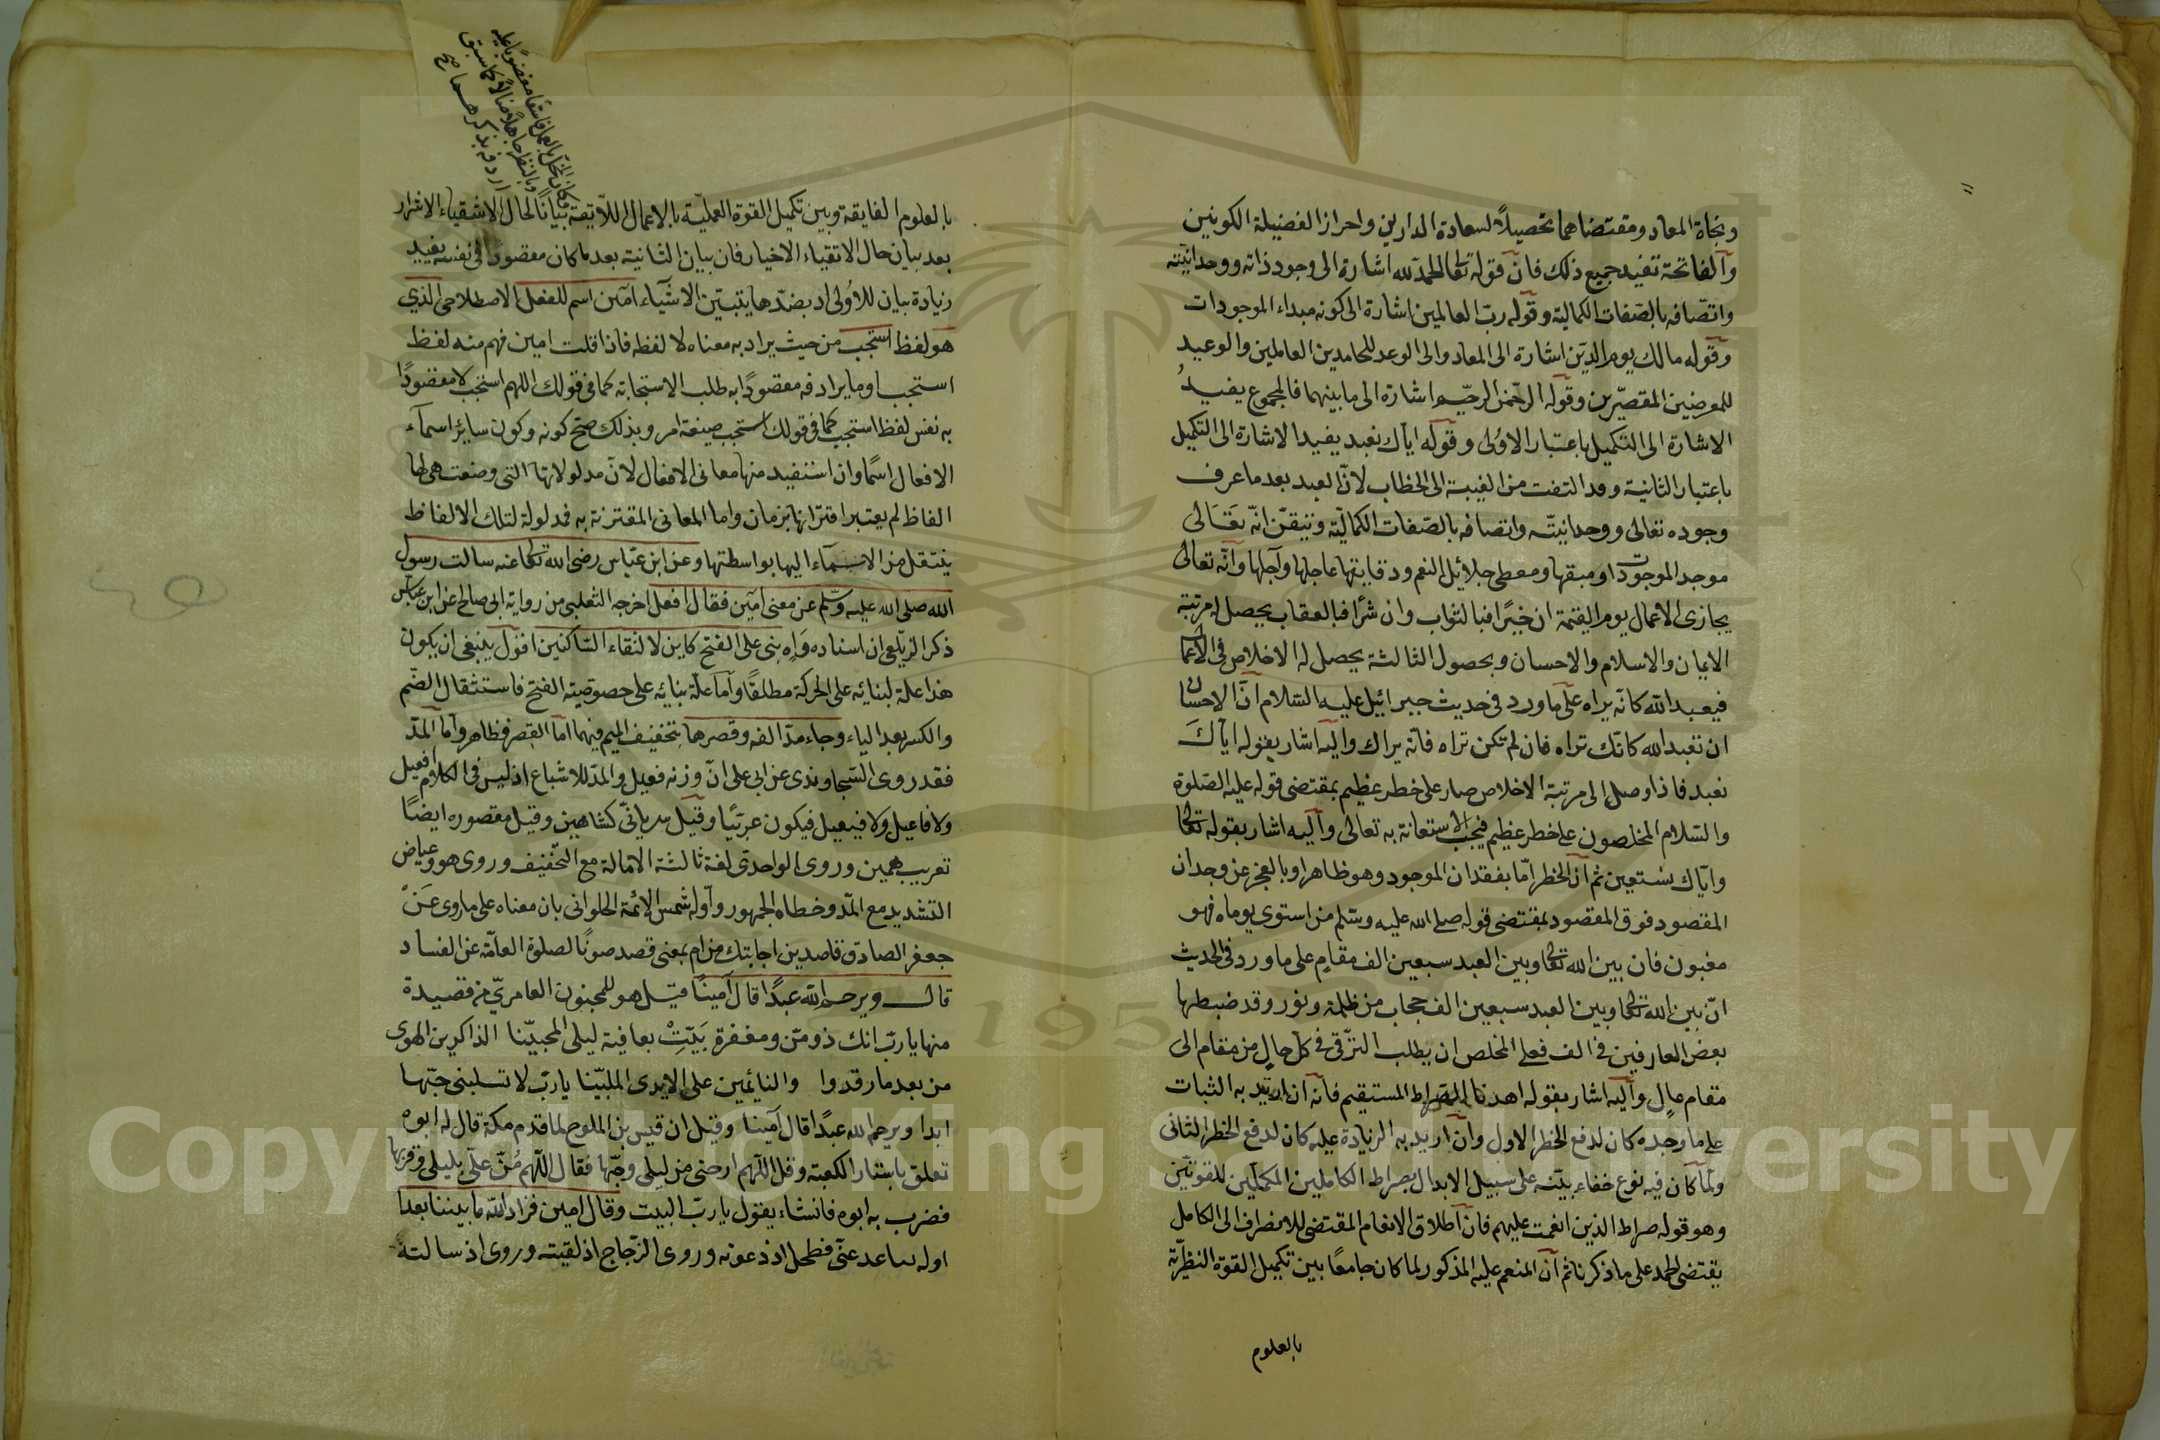 ونجاة المعاد ومقتضاهما تحصيلاً لسعادة الدارين واحراز الفضيلة الكونين
والفاتحة تفيد جميع ذلك فان قوله تعا الحمد لله اشارة الى وجود ذاته ووحدانيته
واتصافه بالصفات الكمالية وقوله رب العالمين اشارة الى كونه مبداء الموجودات
وقوله مالك يوم الدين اشارة الى المعاد والى الوعد للحامدين العاملين والوعيد
للمعرضين المقصرين وقوله الرحمن الرحيم اشارة الى ما بينهما فالمجموع يفيد
الاشارة الى التكميل باعتبار الاولى وقوله اياك نعبد يفيد الاشارة الى التكميل
باعتبار الثانية وقد التفت من الغيبة الى الخطاب لان العبد بعد ما عرف
وجوده تعالى ووحدانيته واتصافه بالصفات الكمالية وتيقن انه تعالى
موجد الموجودات ومبقها ومعطى جلائل النعم ودقايقها عاجلها وآجلها وانه تعالى
يجازى الاعمال يوم القيمة ان خيرا فبالثواب وان شرا فبالعقاب يحصل له مرتبة
الايمان والاسلام والاحسان وبحصول الثالثة يحصل له الاخلاص فى الاعمال
فيعبد الله كانه يراه على ما ورد فى حديث جبرائيل عليه السلام ان الاحسان
ان تعبد الله كانك تراه فان لم تكن تراه فانه يراك واليه اشار بقوله اياك
نعبد فاذا وصل الى مرتبة الاخلاص صار على خطر عظيم بمقتضى قوله عليه الصلوة
والسلام المخلصون على خطر عظيم فيجب الاستعانة به تعالى واليه اشار بقوله تعا
واياك نستعين ثم ان الخطر اما بفقدان الموجود وهو ظاهر او بالعجز عن وجدان
المقصود فوق المقصود بمقتضى قوله صلى الله عليه وسلم من استوى يوماه فهو
مغبون فان بين الله تعا وبين العبد سبعين الف مقام على ما ورد فى الحديث
ان بين الله تعا وبين العبد سبعين الف حجاب من ظلمة ونور وقد ضبطها
بعض العارفين فى الف فعلى المخلص ان يطلب الترقى فى كل حال من مقام الى
مقام عال واليه اشار بقوله اهدنا الصراط المستقيم فانه ان اريد به الثبات
على ما وجده كان لدفع الخطر الاول وان اريد به الزيادة عليه كان لدفع الخطر الثانى
ولما كان فيه نوع خفاء بينه على سبيل الابدال بصراط الكاملين المكملين للقوتين
وهو قوله صراط الذين انعمت عليهم فان اطلاق الانعام المقتضى للانصراف الى الكامل
يقتضى الحمد على ما ذكرنا ثم ان المنعم عليه المذكور لما كان جامعا بين تكميل القوة النظرية
بالعلوم
بالعلوم الفايقة وبين تكميل القوة العملية بالاعمال اللائقة بيانا لحال الاشقياء الاشرار
بعد بيان حال الاتقياء الاخيار فان بيان الثانية بعد ما كان مقصودا فى نفسه يفيد
زيادة بيان للاولى اد بضدها يتبين الاشياء امين اسم للفعل الاصطلاحى الذي
هو لفظ استجب من حيث يراد به معناه لا لفظه فاذا قلت امين فهم منه لفظ
استجب او ما يرادفه مقصودا به طلب الاستجابة كما فى قولك اللهم استجب لا مقصودا
به نفس لفظ استجب كما فى قولك استجب صيغة امر وبذلك صح كونه وكون سائر اسماء
الافعال اسما وان استفيد منها معانى الافعال لان مدلولاتها التى وضعت هى لها
الفاظ لم يعتبر اقترانها بزمان واما المعانى المقترنة به فمدلولة لتلك الالفاظ
ينتقل من الاسماء اليها بواسطتها وعن ابن عباس رضى الله تعا عنه سالت رسول
الله صلى الله عليه وسلم عن معنى امين فقال افعل اخرجه الثعلبى من رواية ابى صالح عن ابن عباس
ذكر الزيلعى ان اسناده واه بنى على الفتح كاين لالتقاء الساكنين اقول ينبغى ان يكون
هذا علة لبنائه على الحركة مطلقا واما علة بنائه على خصوصية الفتح فاستثقال الضم
والكسر بعد الياء وجاء مد الفه وقصرها بتخفيف الميم فيهما اما القصر فظاهر واما المد
فقد روى السجاوندى عن ابى على ان وزنه فعيل والمد للاشباع اذ ليس فى الكلام افعيل
ولا فاعيل ولا فيعيل فيكون عربيا وقيل سريانى كشاهين وقيل مقصوره ايضا
تعريب همين وروى الواحدى لغة ثالثة الامالة مع التخفيف وروى هو وعياض
التشديد مع المد وخطاه الجمهور واوله شمس الائمة الحلوانى بان معناه على ما روى عن
جعفر الصادق قاصدين اجابتك من ام بمعنى قصد صونا لصلوة العامة عن الفساد
قال ويرحم الله عبدا قال آمينا قيل هو للمجنون العامرى من قصيدة
منها يا رب انك ذو من ومغفرة بيت بعافية ليلى المحبينا الذاكرين الهوى
من بعد ما رقدوا والنايمين على الايدى الملبينا يا رب لا تسلبنى حبها
ابدا ويرحم الله عبدا قال آمينا وقيل ان قيس بن الملوح لما قدم مكة قال له ابوه
تعلق باستار الكعبة وقل اللهم ارحنى من ليلى وحبها فقال اللهم من على بليلى وقربها
فضرب به ابوه فانشاء يقول يا رب البيت وقال امين فزاد الله ما بيننا بعدا
اوله تباعد عنى فطحل اذ دعوته وروى الزجاج اذ لقيته وروى اذ سالته
Copyright © King Saud University